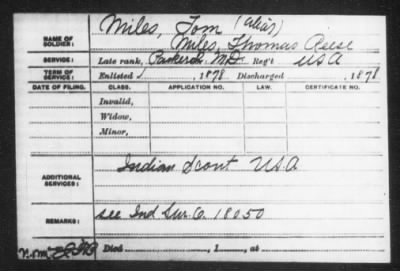 Miles, Tom (alias)
NAME OF SOLDIER: Miles, Thomas Reese
SERVICE: Late rank, Packer M.D. Reg't USA
TERM OF SERVICE: Enlisted , 1878 Discharged , 1878
DATE OF FILING. CLASS. APPLICATION NO. LAW. CERTIFICATE NO.
Invalid,
Widow,
Minor,
ADDITIONAL SERVICES: Indian Scout U.S.A
REMARKS: see Ind Sur. C. 18050
Died , 1 , at